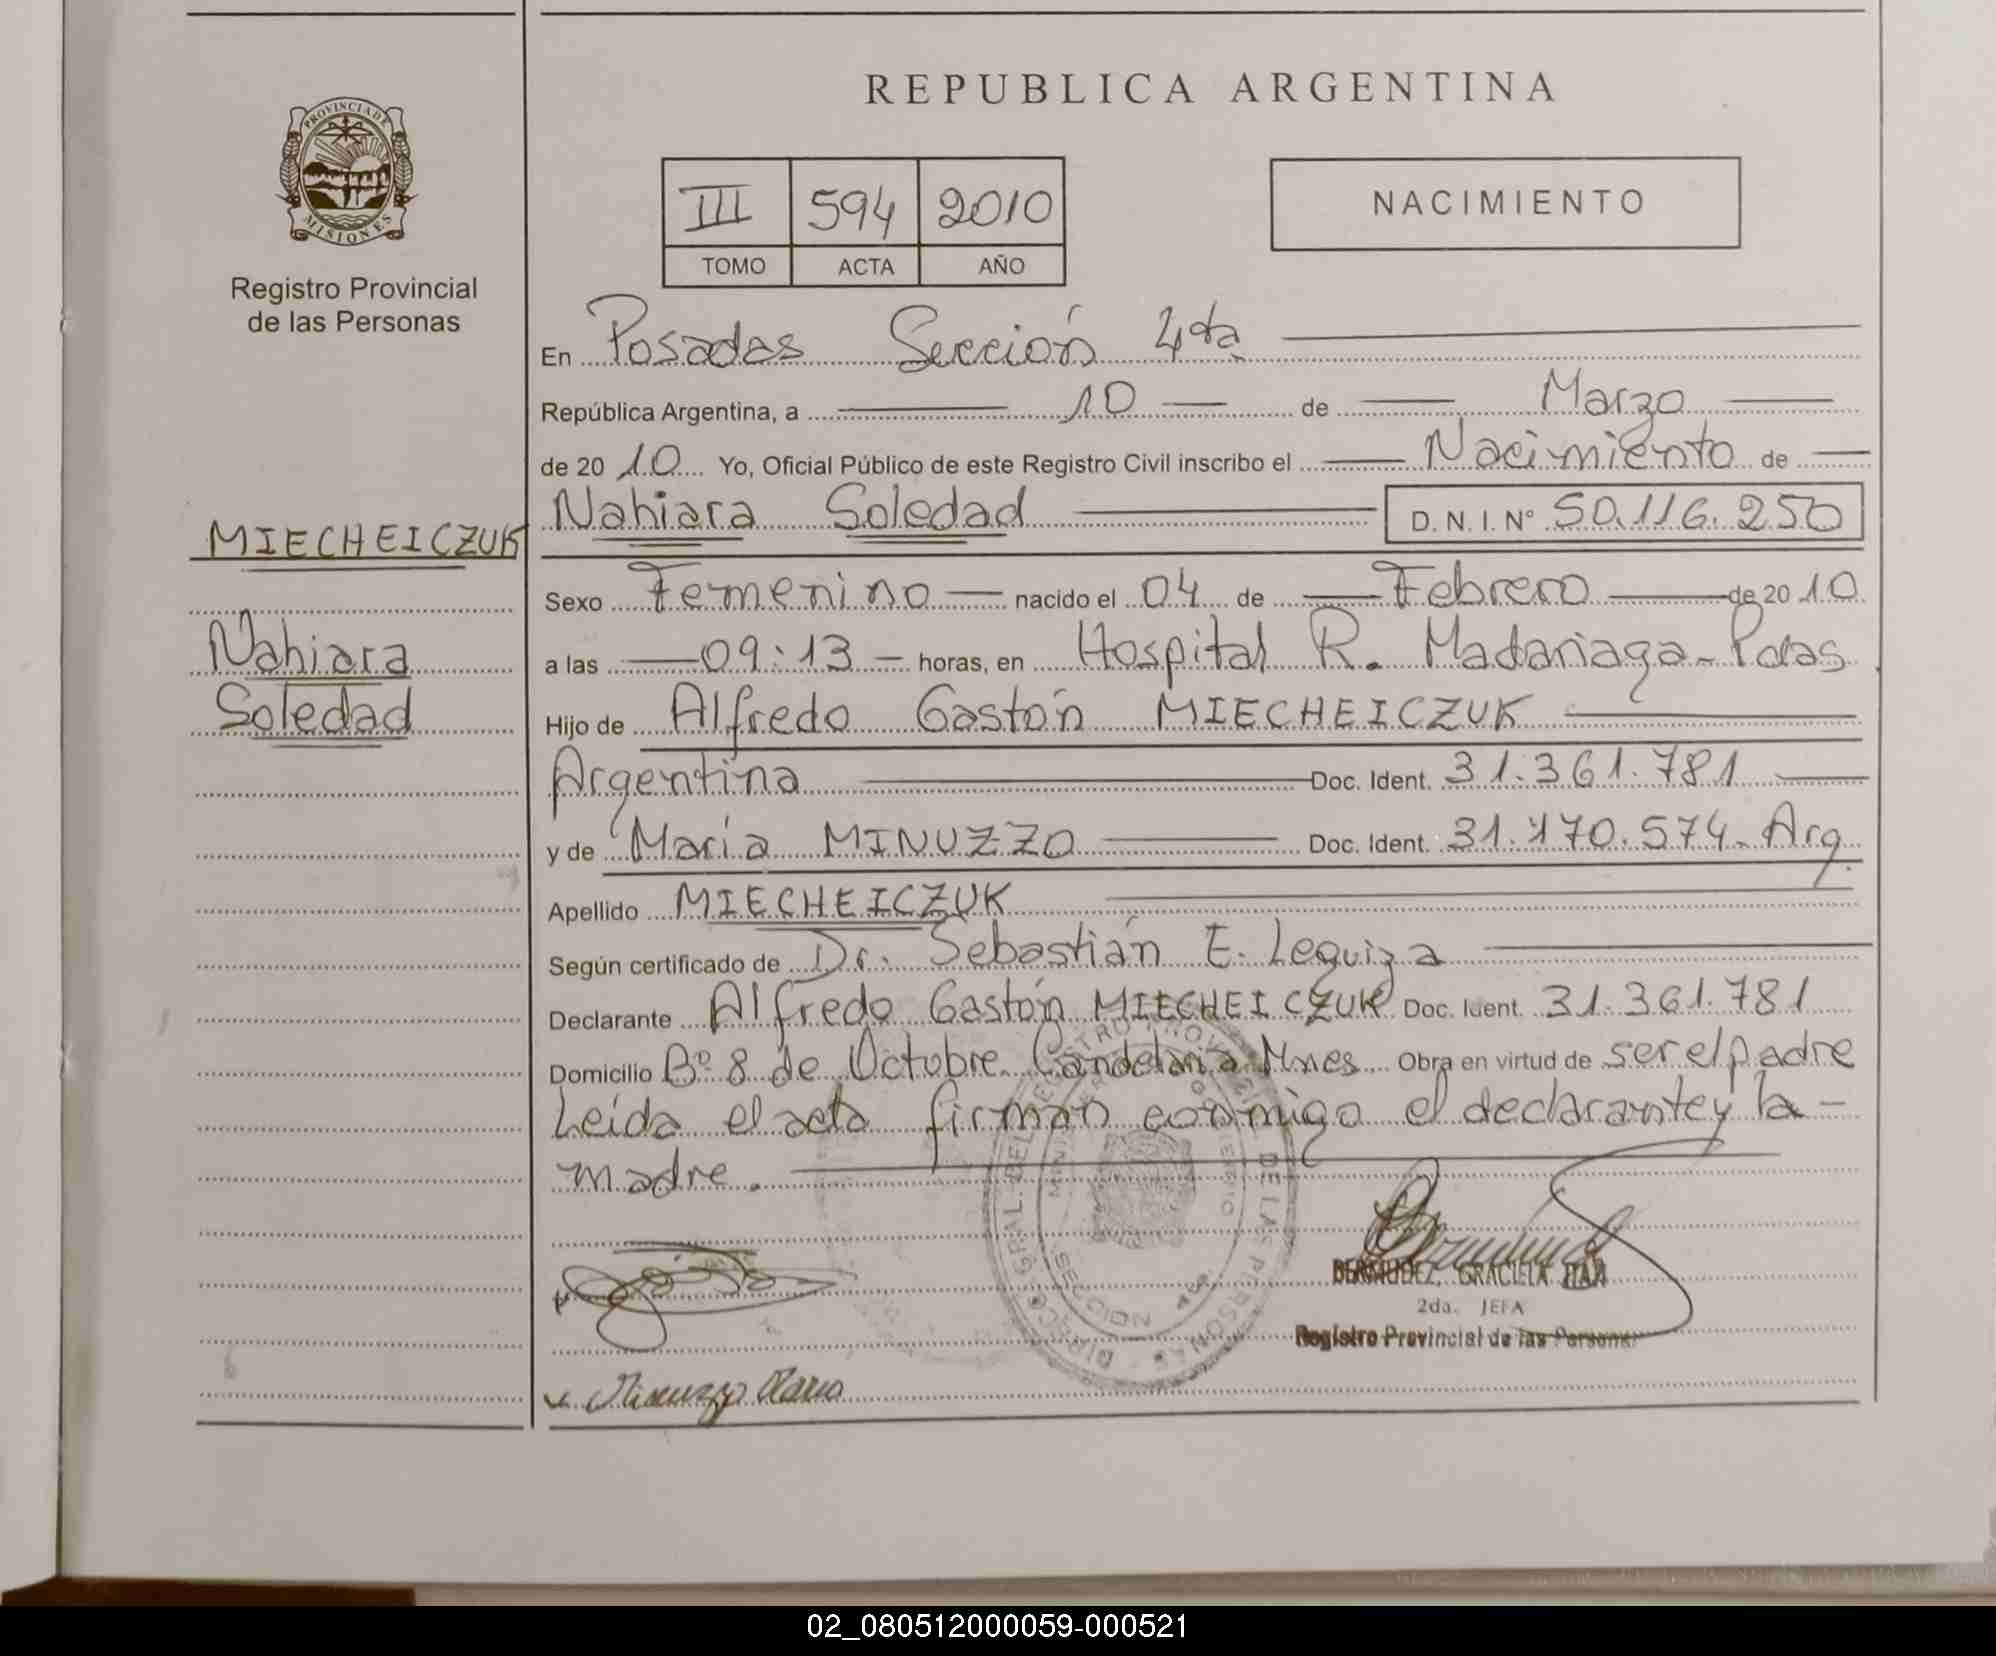 REPUBLICA ARGENTINA
PROVINCIA DE
MISIONES
Registro Provincial
de las Personas
III 594 2010
TOMO ACTA AÑO
NACIMIENTO
En Posadas Sección 4ta
República Argentina, a 10 de Marzo
de 20 10 Yo, Oficial Público de este Registro Civil inscribo el Nacimiento de
MIECHEICZUK
Nahiara
Soledad
Nahiara Soledad D.N.I. Nº 50.116.250
Sexo Femenino nacido el 04 de Febrero de 20 10
a las 09:13 horas, en Hospital R. Madariaga - Pdas
Hijo de Alfredo Gastón MIECHEICZUK
Argentina Doc. Ident. 31.361.781
y de María MINUZZO Doc. Ident. 31.170.574 - Arg.
Apellido MIECHEICZUK
Según certificado de Dr. Sebastián E. Leguiza
Declarante Alfredo Gastón MIECHEICZUK Doc. Ident. 31.361.781
Domicilio Bº 8 de Octubre Candelaria Mnes Obra en virtud de ser el padre
Leída el acta firman conmigo el declarante y la -
madre.
BERMUDEZ, GRACIELA
2da. JEFA
Registro Provincial de las Persona
Minuzzo Maria
02_080512000059-000521